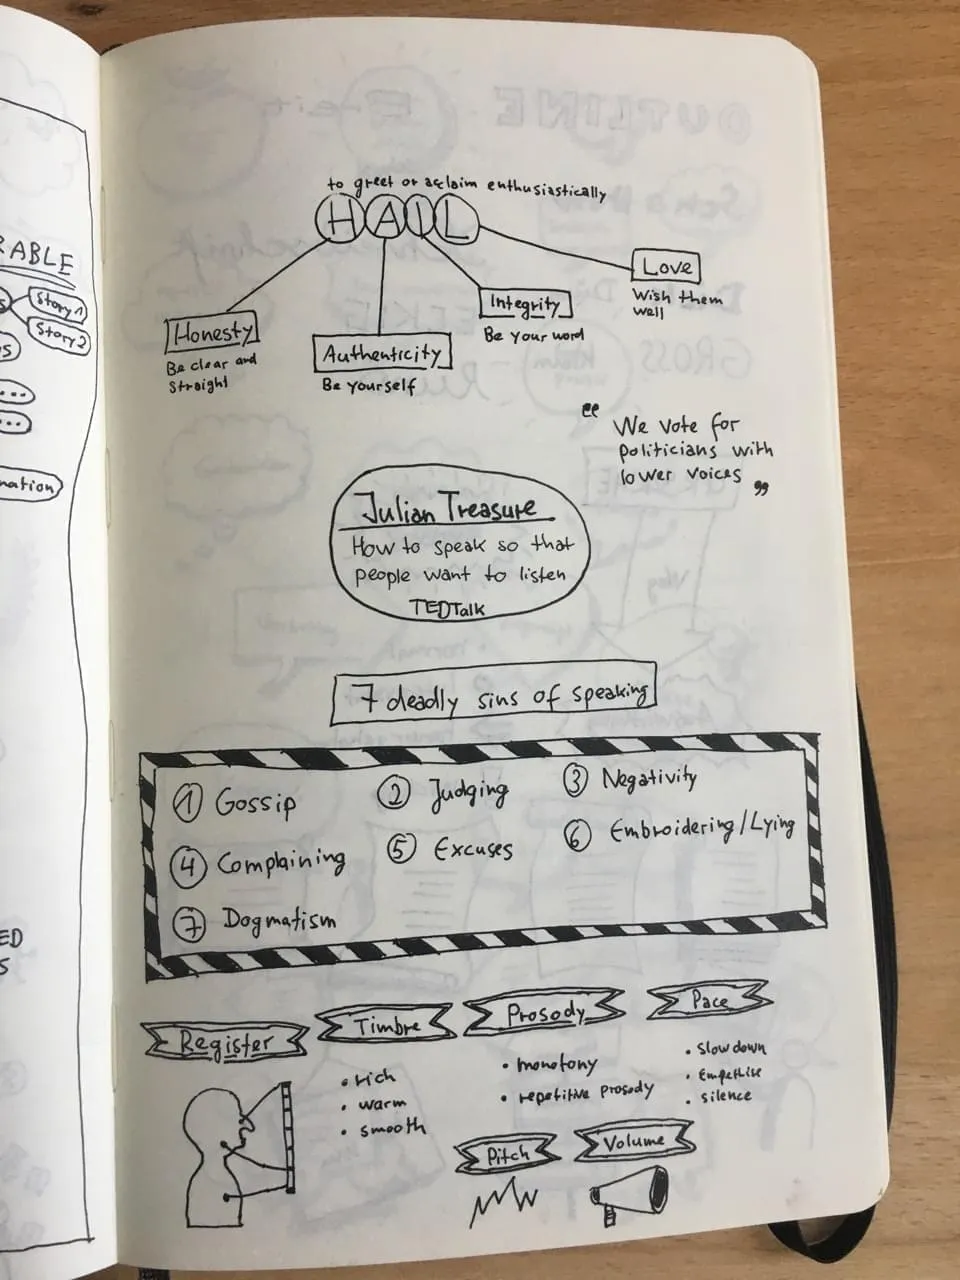 RABLE
Story 1
Story 2
mation
ED
S
to greet or acclaim enthusiastically
HAIL
Honesty
Be clear and
straight
Authenticity
Be yourself
Integrity
Be your word
Love
Wish them
well
"We vote for
politicians with
lower voices"
Julian Treasure
How to speak so that
people want to listen
TEDTalk
7 deadly sins of speaking
1 Gossip
2 Judging
3 Negativity
4 Complaining
5 Excuses
6 Embroidering/Lying
7 Dogmatism
Register
Timbre
• rich
• warm
• smooth
Prosody
• monotony
• repetitive prosody
Pace
• slow down
• silence
Pitch
Volume